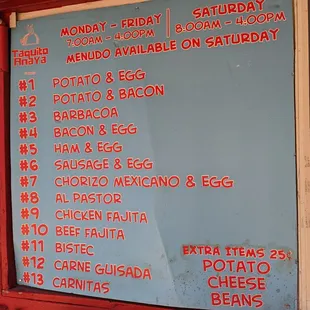 Taquito
Anaya
MONDAY - FRIDAY
7:00AM - 4:00PM
SATURDAY
8:00AM - 4:00PM
MENUDO AVAILABLE ON SATURDAY
#1 POTATO & EGG
#2 POTATO & BACON
#3 BARBACOA
#4 BACON & EGG
#5 HAM & EGG
#6 SAUSAGE & EGG
#7 CHORIZO MEXICANO & EGG
#8 AL PASTOR
#9 CHICKEN FAJITA
#10 BEEF FAJITA
#11 BISTEC
#12 CARNE GUISADA
#13 CARNITAS
EXTRA ITEMS 25¢
POTATO
CHEESE
BEANS